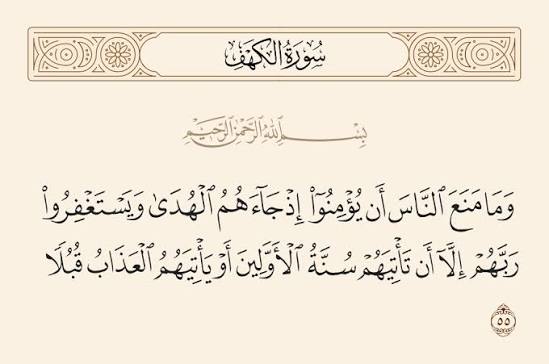 سُورَةُ الكَهْفِ
بِسْمِ اللهِ الرَّحْمٰنِ الرَّحِيْمِ
وَمَا مَنَعَ ٱلنَّاسَ أَن يُؤْمِنُوٓا۟ إِذْ جَآءَهُمُ ٱلْهُدَىٰ وَيَسْتَغْفِرُوا۟
رَبَّهُمْ إِلَّآ أَن تَأْتِيَهُمْ سُنَّةُ ٱلْأَوَّلِينَ أَوْ يَأْتِيَهُمُ ٱلْعَذَابُ قُبُلًا
٥٥